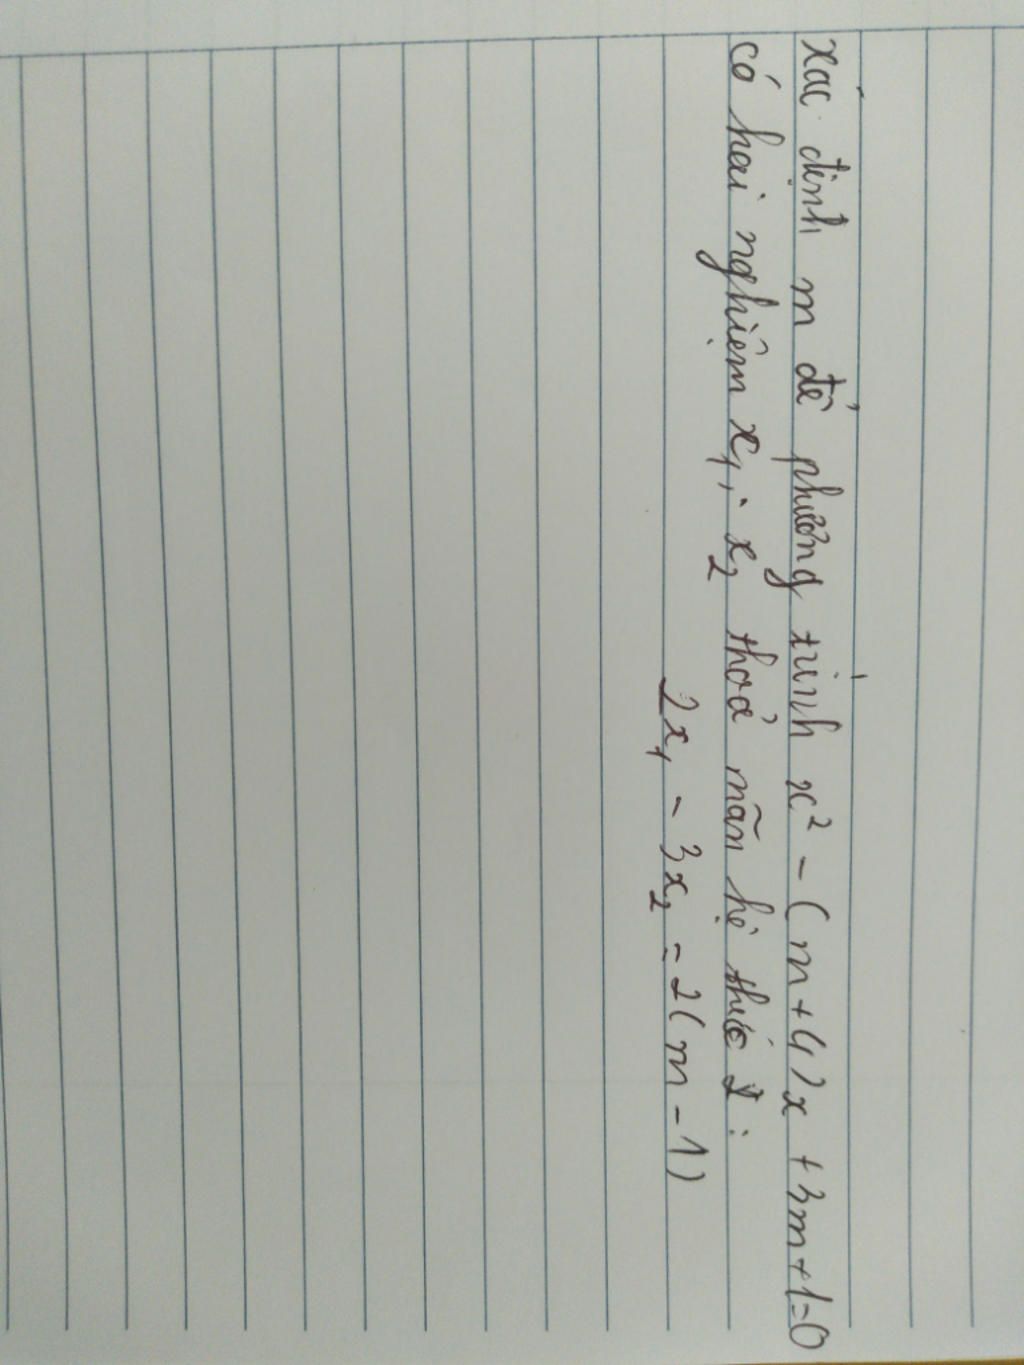 xác định m để phương trình x² - (m+4)x + 3m+1=0
có hai nghiệm x₁; x₂ thoả mãn hệ thức :
2x₁ - 3x₂ = 2(m - 1)